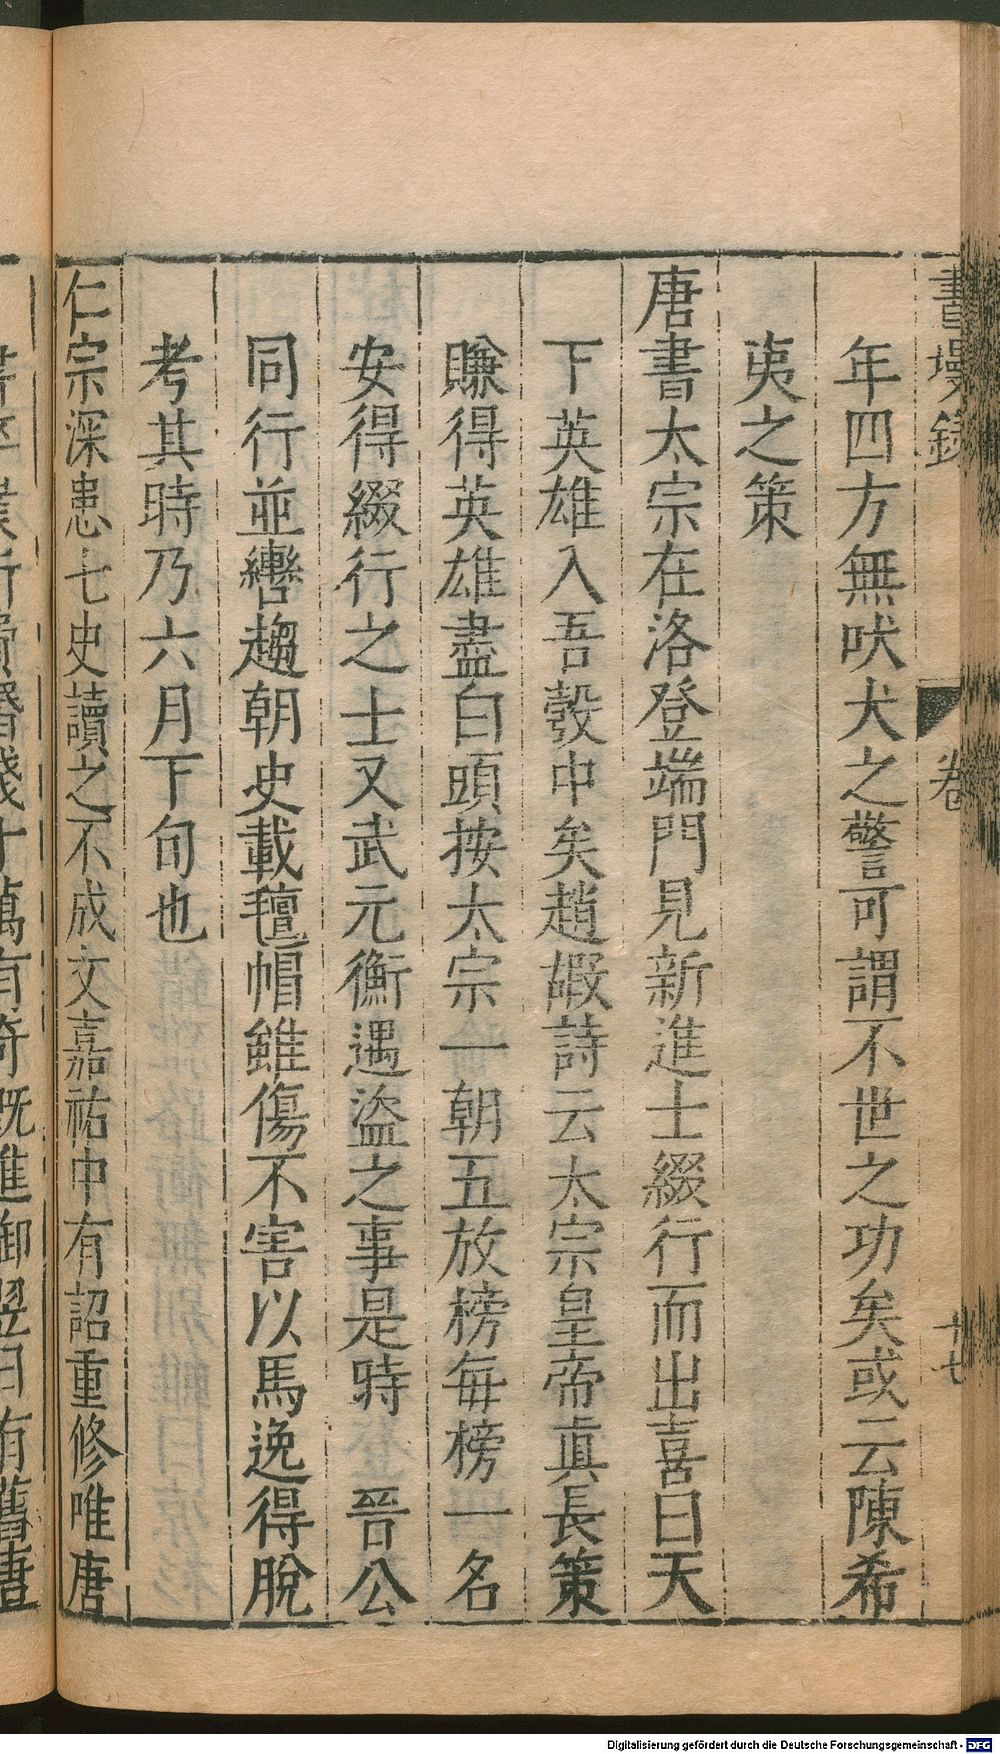 書墁錄 卷 十七
年四方無吠犬之警可謂不世之功矣或云陳希
夷之策
唐書太宗在洛登端門見新進士綴行而出喜曰天
下英雄入吾彀中矣趙嘏詩云太宗皇帝眞長策
賺得英雄盡白頭按太宗一朝五放榜每榜一名
安得綴行之士又武元衡遇盜之事是時 晉公
同行並轡趨朝史載氊帽雖傷不害以馬逸得脫
考其時乃六月下旬也
仁宗深患七史讀之不成文嘉祐中有詔重修唯唐
Digitalisierung gefördert durch die Deutsche Forschungsgemeinschaft - DFG